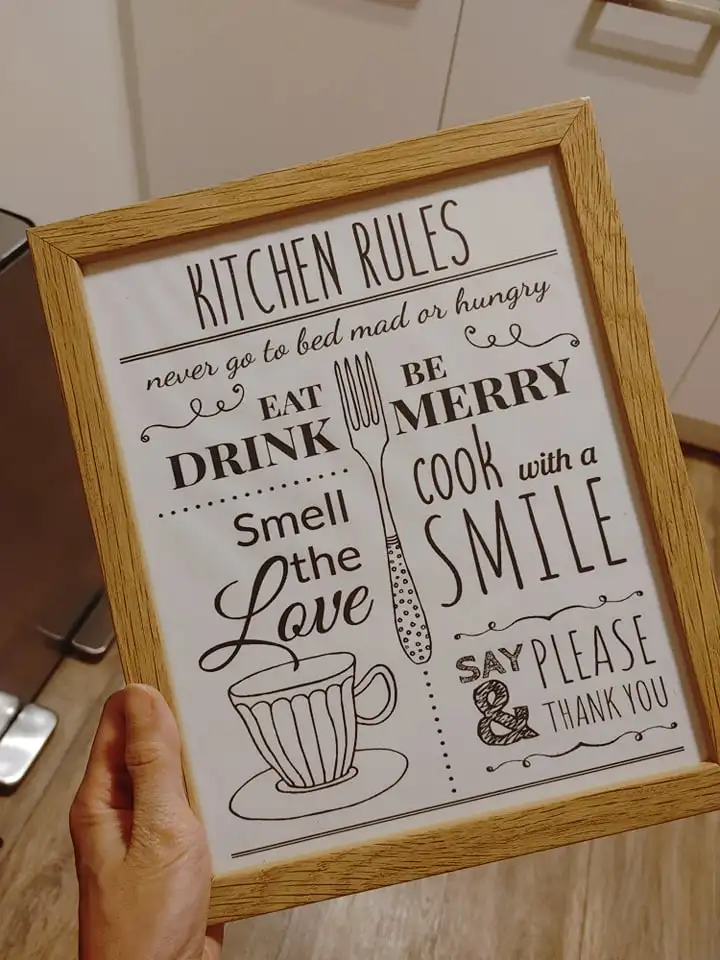 KITCHEN RULES
never go to bed mad or hungry
EAT
DRINK
BE
MERRY
Smell
the
Love
cook with a
SMILE
SAY PLEASE
& THANK YOU